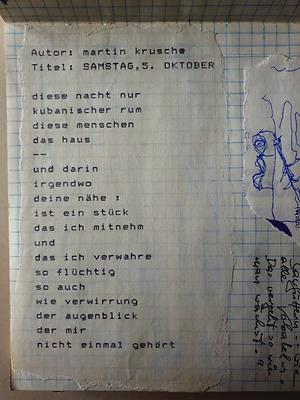 Autor: martin krusche
Titel: SAMSTAG,5. OKTOBER
diese nacht nur
kubanischer rum
diese menschen
das haus
--
und darin
irgendwo
deine nähe :
ist ein stück
das ich mitnehm
und
das ich verwahre
so flüchtig
so auch
wie verwirrung
der augenblick
der mir
nicht einmal gehört